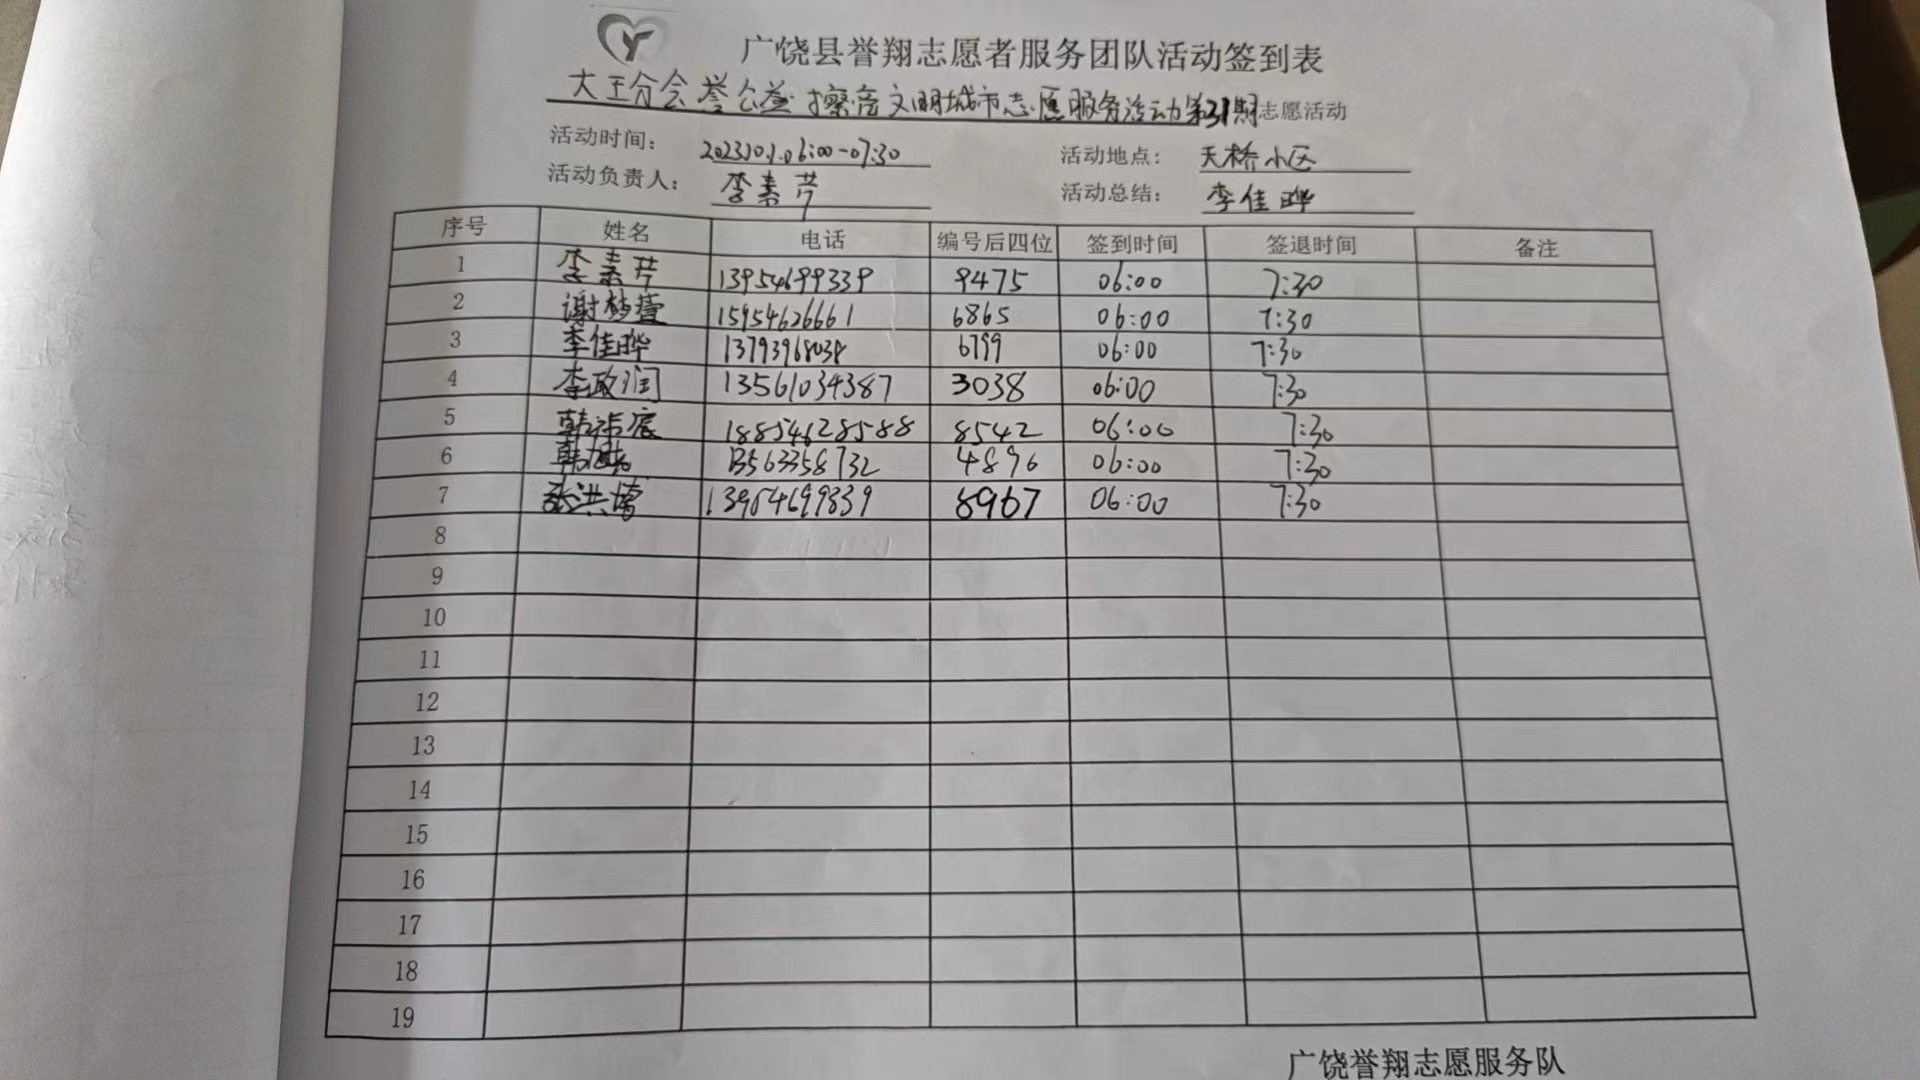 广饶县誉翔志愿者服务团队活动签到表
大王分会誉公益·擦亮文明城市志愿服务活动第31期志愿活动
活动时间： 2023.10.1.06:00-07:30 活动地点： 天桥小区
活动负责人： 李素芹 活动总结： 李佳晔
序号 姓名 电话 编号后四位 签到时间 签退时间 备注
1 李素芹 13954699339 9475 06:00 7:30
2 谢梦萱 15954626661 6865 06:00 7:30
3 李佳晔 13793968038 6799 06:00 7:30
4 李政润 13561034387 3038 06:00 7:30
5 韩祎宸 18854628588 8542 06:00 7:30
6 韩 13563358732 4896 06:00 7:30
7 张洪博 13954699339 8967 06:00 7:30
8
9
10
11
12
13
14
15
16
17
18
19
广饶誉翔志愿服务队